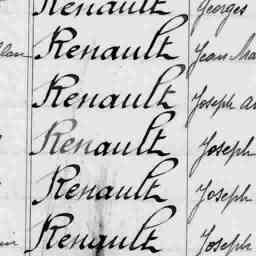 Renault Georges
Renault Jean Ma
Renault Joseph
Renault Joseph
Renault Joseph
Renault Joseph